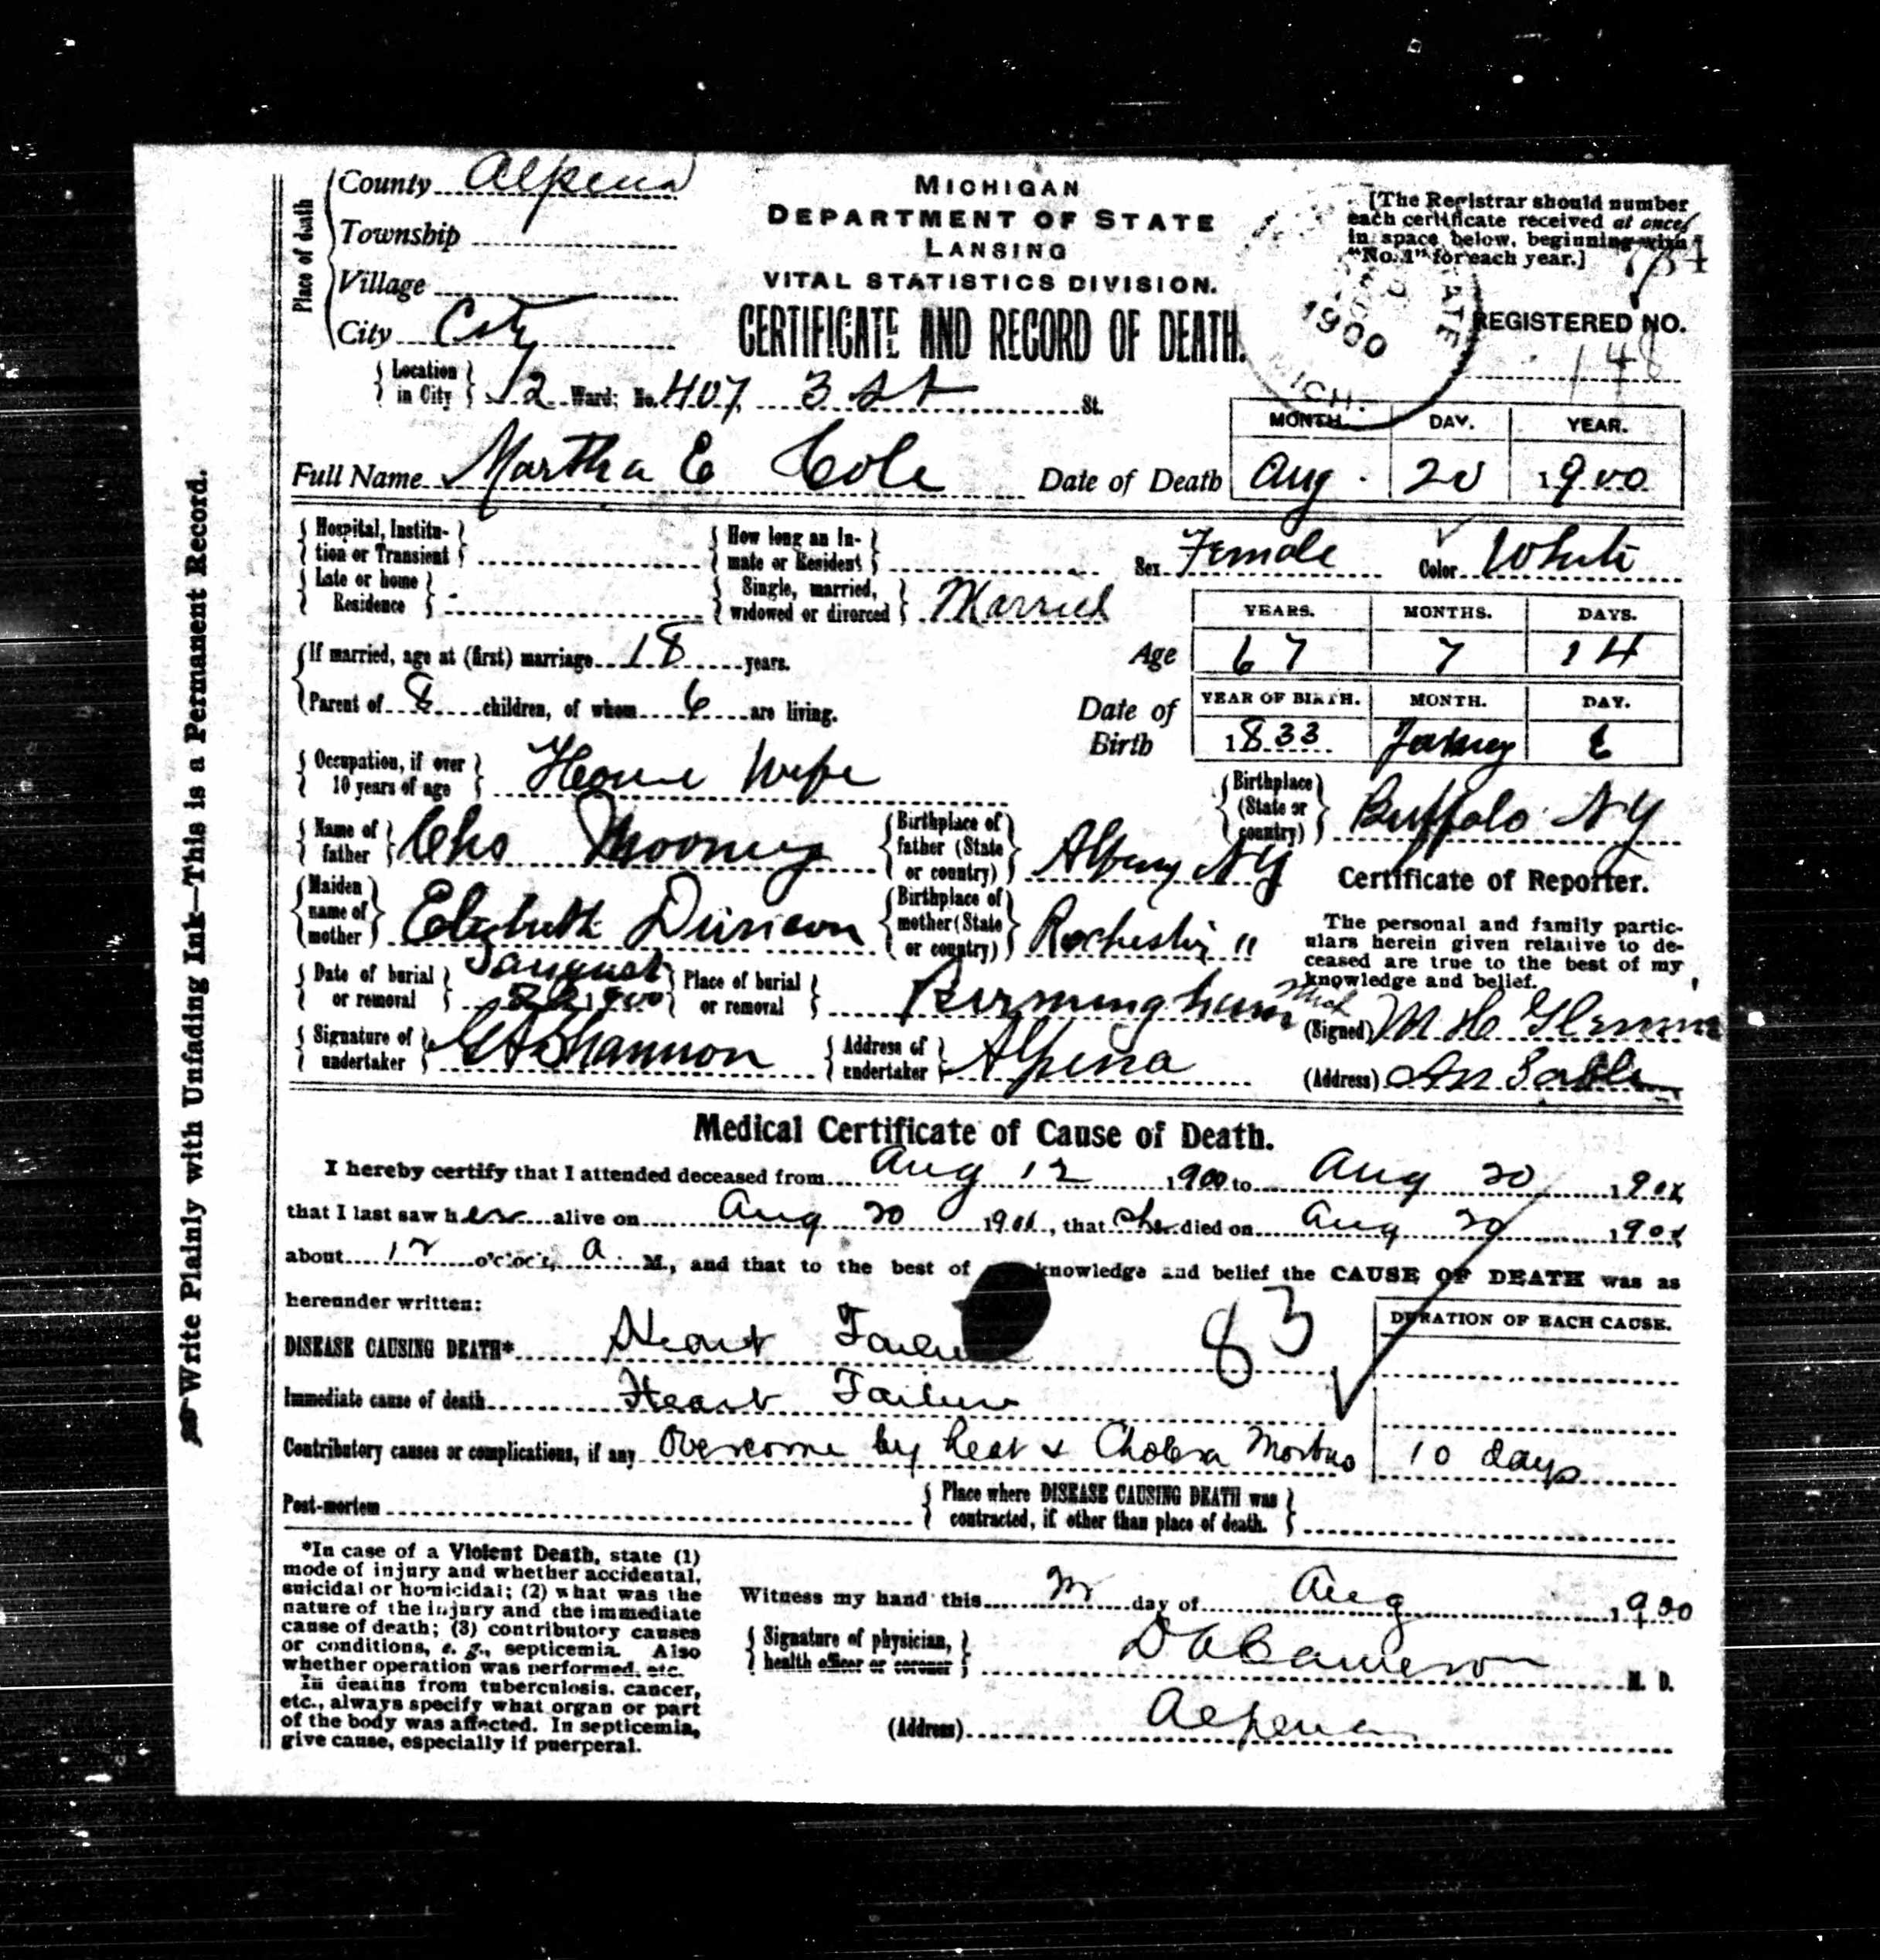 County Alpena
Township
Village
City City
Place of death
MICHIGAN
DEPARTMENT OF STATE
LANSING
VITAL STATISTICS DIVISION.
CERTIFICATE AND RECORD OF DEATH.
[The Registrar should number
each certificate received at once
in space below, beginning with
"No. 1" for each year.]
REGISTERED NO.
148
1900
STATE
MICH.
Location in City 2 Ward; No. 407 3 St St.
Full Name Martha E Cole Date of Death
MONTH. DAY. YEAR.
Aug. 20 1900
Hospital, Institution or Transient
How long an Inmate or Resident
Sex Female Color White
Late or home Residence
Single, married, widowed or divorced Married
If married, age at (first) marriage 18 years.
Age
YEARS. MONTHS. DAYS.
67 7 14
Parent of 8 children, of whom 6 are living.
Date of Birth
YEAR OF BIRTH. MONTH. DAY.
1833 6
Occupation, if over 10 years of age House Wife
Birthplace (State or country) Buffalo NY
Name of father Chs Mooney
Birthplace of father (State or country) Albany NY
Maiden name of mother Elizbeth
Birthplace of mother (State or country) Rochester "
Date of burial or removal August 22 1900
Place of burial or removal Birmingham Mich
Signature of undertaker Shannon
Address of undertaker Alpena
Certificate of Reporter.
The personal and family partic-
ulars herein given relative to de-
ceased are true to the best of my
knowledge and belief.
(Signed) M H
(Address) Au Sable
Write Plainly with Unfading Ink—This is a Permanent Record.
Medical Certificate of Cause of Death.
I hereby certify that I attended deceased from Aug 12 1900 to Aug 20 190
that I last saw her alive on Aug 20 190, that she died on Aug 20 190
about 12 o'clock, a. M., and that to the best of knowledge and belief the CAUSE OF DEATH was as
hereunder written:
83
DURATION OF EACH CAUSE.
DISEASE CAUSING DEATH* Heart Failure
Immediate cause of death Heart Failure
Contributory causes or complications, if any Overcome by heat & Cholera Morbus 10 days
Post-mortem
Place where DISEASE CAUSING DEATH was contracted, if other than place of death.
*In case of a Violent Death, state (1)
mode of injury and whether accidental,
suicidal or homicidal; (2) what was the
nature of the injury and the immediate
cause of death; (3) contributory causes
or conditions, e. g., septicemia. Also
whether operation was performed, etc.
In deaths from tuberculosis, cancer,
etc., always specify what organ or part
of the body was affected. In septicemia,
give cause, especially if puerperal.
Witness my hand this day of Aug 1900
Signature of physician, health officer or coroner D A Cameron M. D.
(Address) Alpena